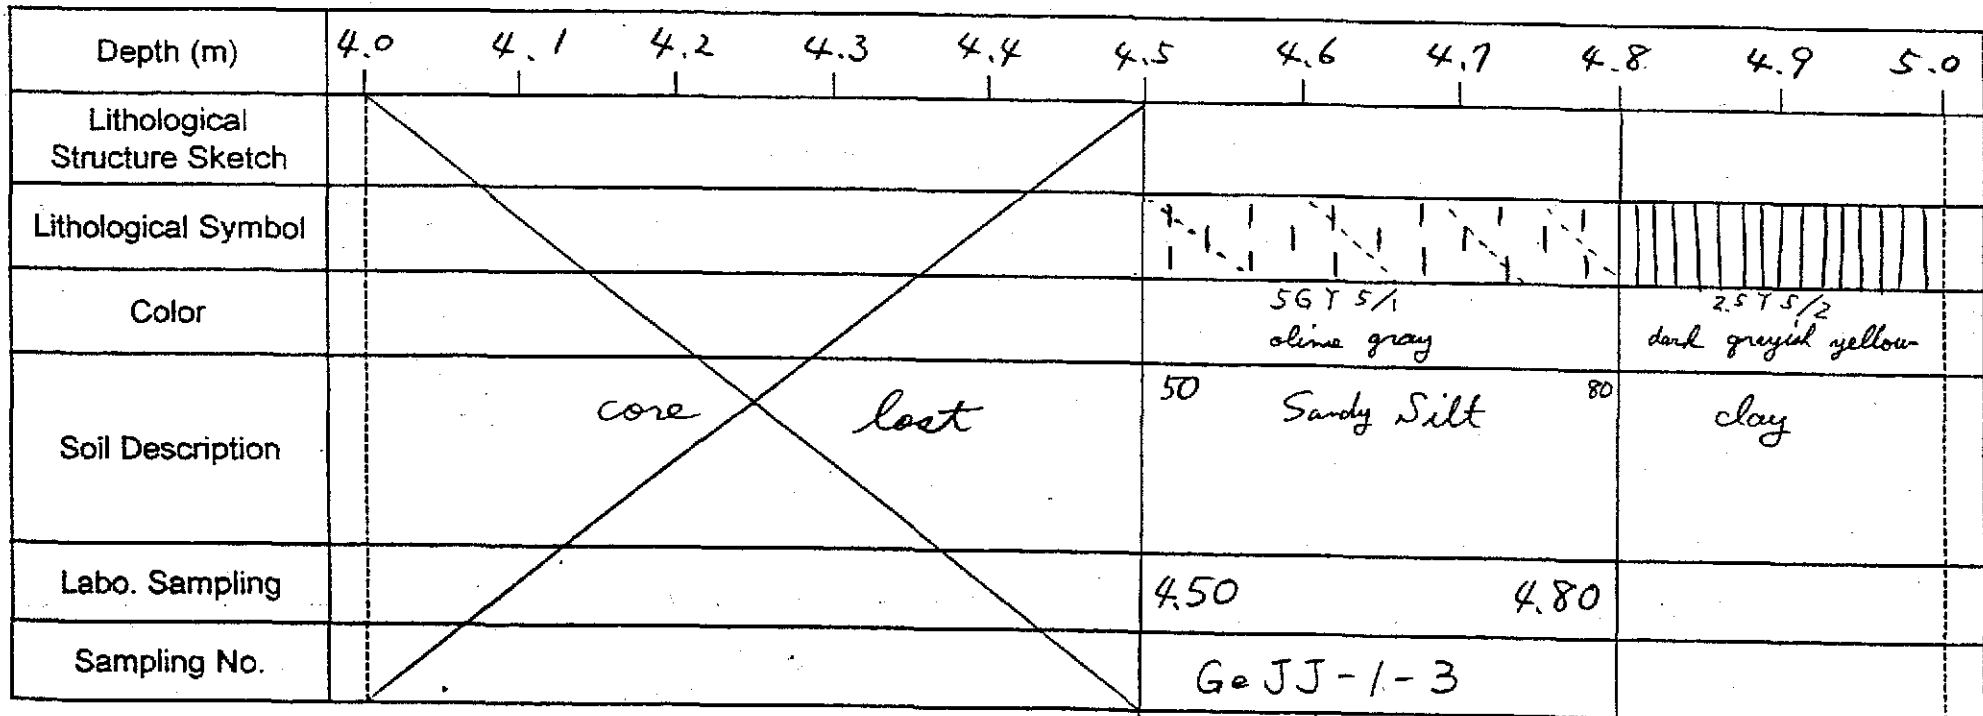 Depth (m) 4.0 4.1 4.2 4.3 4.4 4.5 4.6 4.7 4.8 4.9 5.0
Lithological
Structure Sketch
Lithological Symbol
Color 5GY 5/1 2.5Y 5/2
olive gray dark greyish yellow
Soil Description core lost 50 Sandy Silt 80 clay
Labo. Sampling 4.50 4.80
Sampling No. GeJJ-1-3